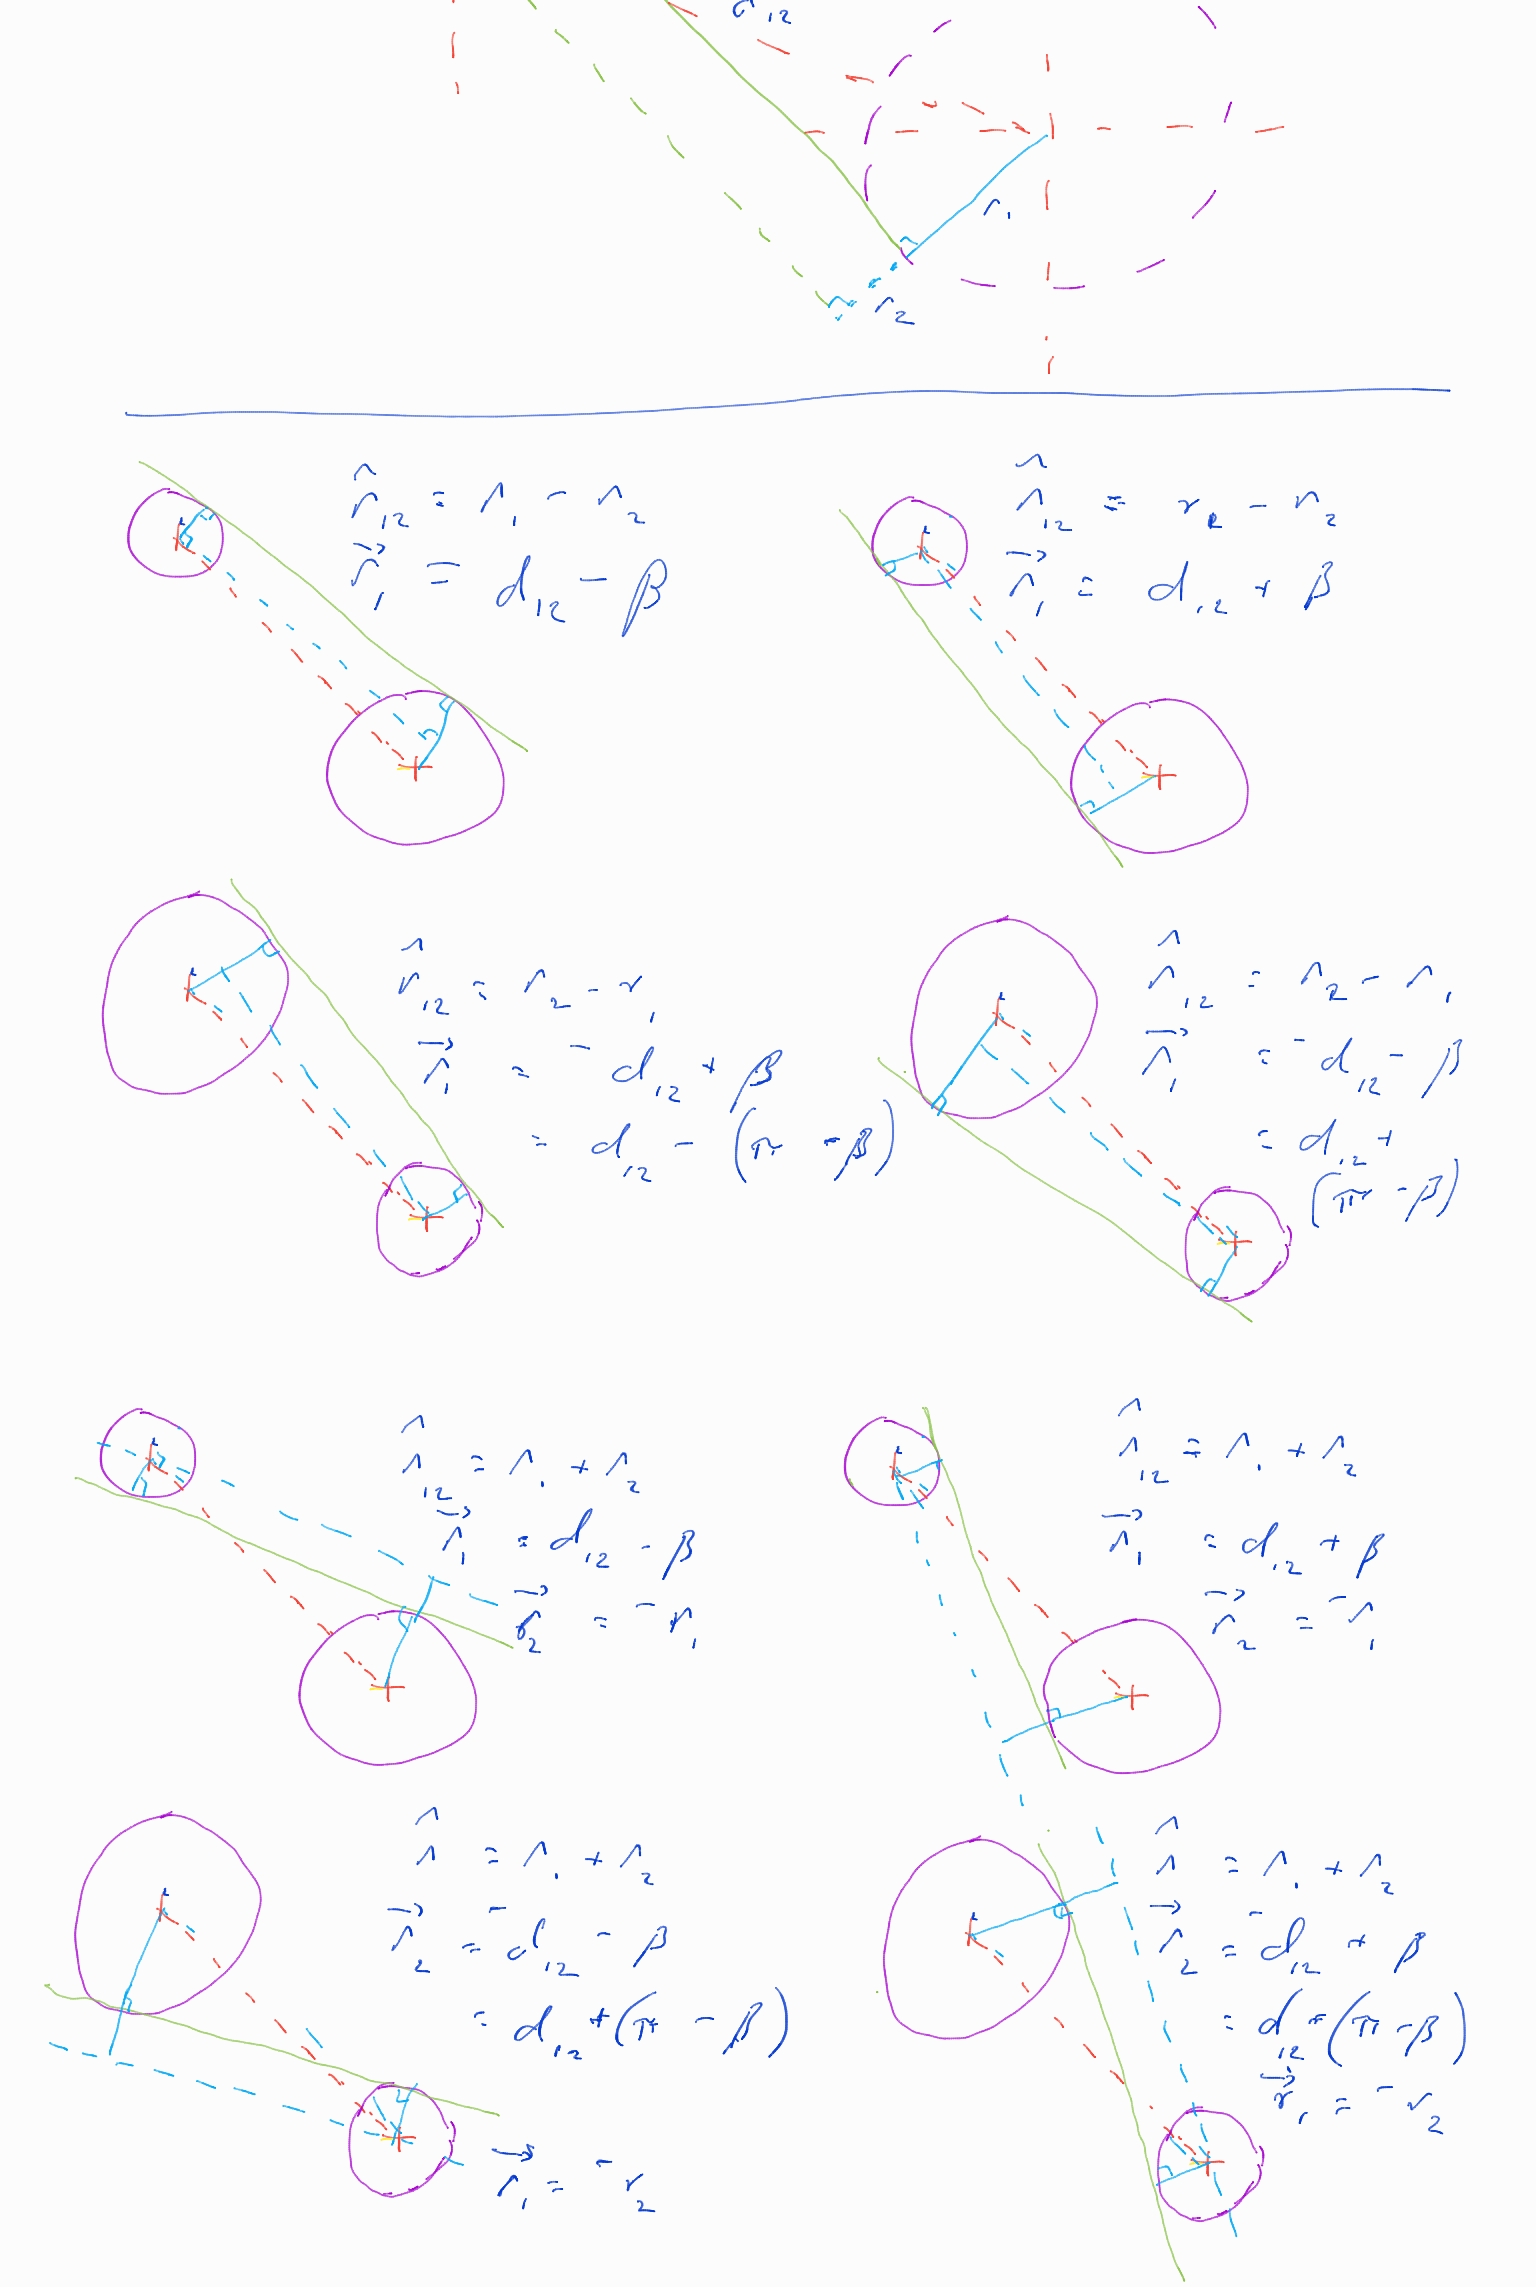 d₁₂
r₁
r₂
r̂₁₂ = r₁ - r₂
r⃗₁ = d₁₂ - β
r̂₁₂ = r₂ - r₂
r⃗₁ = d₁₂ + β
r̂₁₂ = r₂ - r₁
r⃗₁ = -d₁₂ + β
= d₁₂ - (π - β)
r̂₁₂ = r₂ - r₁
r⃗₁ = -d₁₂ - β
= d₁₂ +
(π - β)
r̂₁₂ = r₁ + r₂
r⃗₁ = d₁₂ - β
r⃗₂ = -r₁
r̂₁₂ = r₁ + r₂
r⃗₁ = d₁₂ + β
r⃗₂ = -r₁
r̂ = r₁ + r₂
r⃗₂ = -d₁₂ - β
= d₁₂ + (π - β)
r⃗₁ = -r₂
r̂ = r₁ + r₂
r⃗₂ = -d₁₂ + β
= d₁₂ - (π - β)
r⃗₁ = -r₂